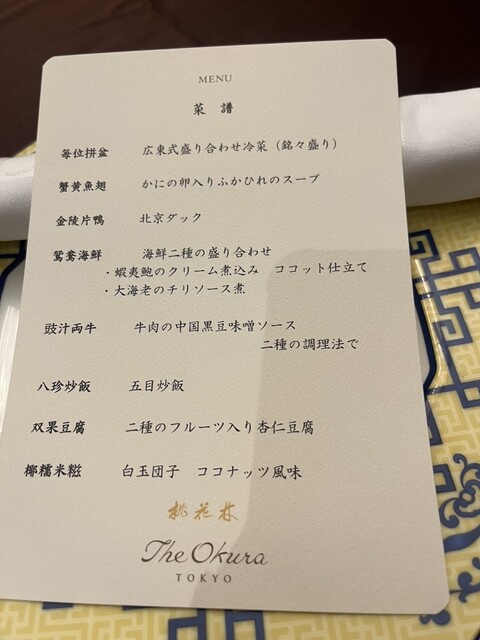 MENU
菜 譜
毎位拼盆 広東式盛り合わせ冷菜（銘々盛り）
蟹黄魚翅 かにの卵入りふかひれのスープ
金陵片鴨 北京ダック
鴛鴦海鮮 海鮮二種の盛り合わせ
・蝦夷鮑のクリーム煮込み ココット仕立て
・大海老のチリソース煮
豉汁両牛 牛肉の中国黒豆味噌ソース
二種の調理法で
八珍炒飯 五目炒飯
双果豆腐 二種のフルーツ入り杏仁豆腐
椰糯米糍 白玉団子 ココナッツ風味
桃花林
The Okura
TOKYO